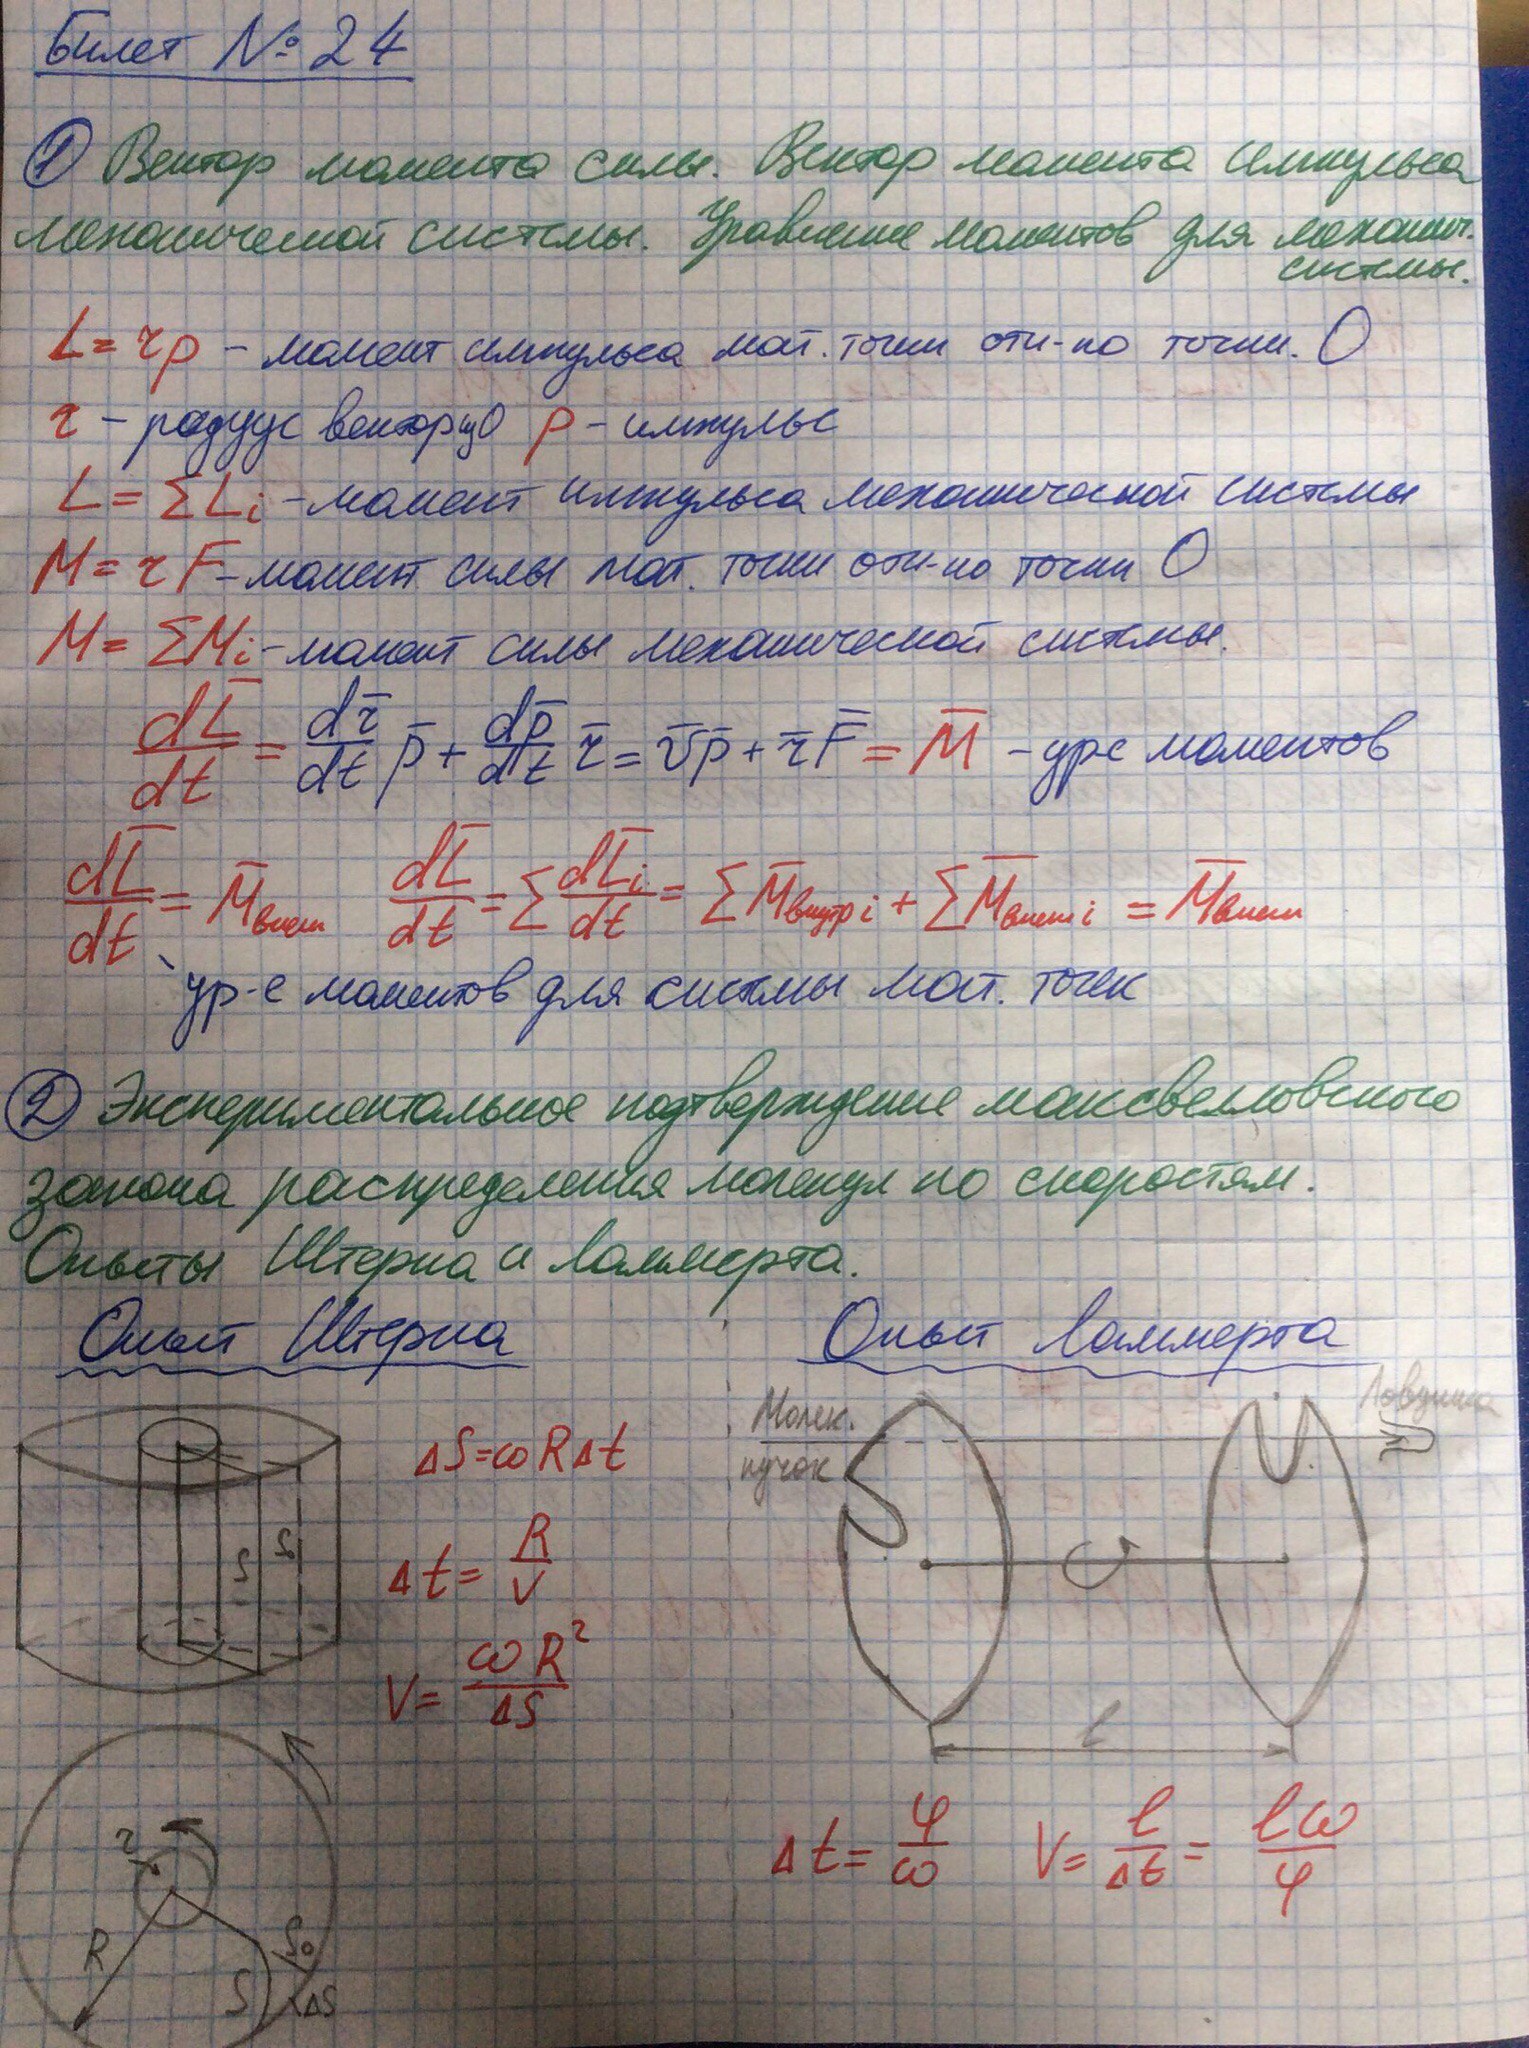 Билет № 24
① Вектор момента силы. Вектор момента импульса
механической системы. Уравнение моментов для механич.
системы.
L = rp – момент импульса мат. точки отн-но точки. O
r – радиус вектор из O p – импульс
L = ΣLi – момент импульса механической системы
M = r F – момент силы мат. точки отн-но точки O
M = ΣMi – момент силы механической системы.
dL̄/dt = dr̄/dt p̄ + dp̄/dt r̄ = v̄p̄ + r̄F̄ = M̄ – ур-е моментов
dL̄/dt = M̄внеш dL̄/dt = Σ dL̄i/dt = ΣM̄внутр i + ΣM̄внеш i = M̄внеш
ур-е моментов для системы мат. точек
② Экспериментальное подтверждение максвелловского
закона распределения молекул по скоростям.
Опыты Штерна и Ламмерта.
Опыт Штерна
Опыт Ламмерта
S S₀
ΔS = ωRΔt
Δt = R/V
V = ωR²/ΔS
r
R
S S₀ ΔS
Молек.
пучок
Ловушка
l
Δt = φ/ω V = l/Δt = lω/φ